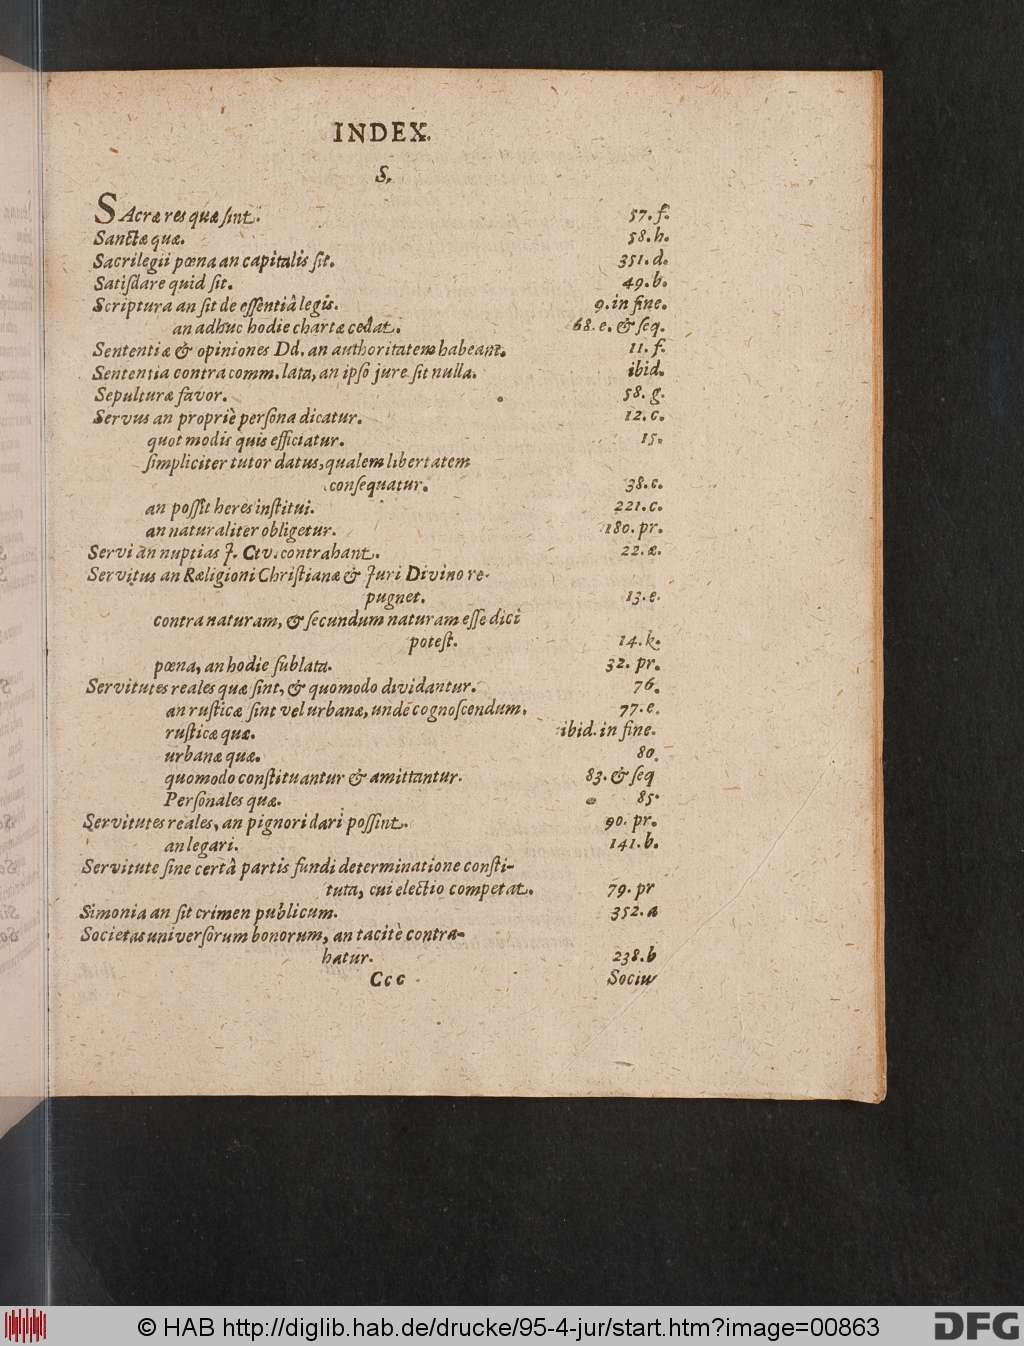 INDEX.
S.
SAcræ res quæ ſint. 57. f.
Sanctæ quæ. 58. h.
Sacrilegii pœna an capitalis ſit. 351. d.
Satiſdare quid ſit. 49. b.
Scriptura an ſit de eſſentiâ legis. 9. in fine.
an adhuc hodie chartæ cedat. 68. e. & ſeq.
Sententiæ & opiniones Dd. an authoritatem habeant. 11. f.
Sententia contra comm. lata, an ipſo jure ſit nulla. ibid.
Sepulturæ favor. 58. g.
Servus an propriè perſona dicatur. 12. c.
quot modis quis efficiatur. 15.
ſimpliciter tutor datus, qualem libertatem
conſequatur. 38. c.
an poſſit heres inſtitui. 221. c.
an naturaliter obligetur. 180. pr.
Servi an nuptias J. Civ. contrahant. 22. æ.
Servitus an Religioni Chriſtianæ & Juri Divino re-
pugnet. 13. e.
contra naturam, & ſecundum naturam eſſe dici
poteſt. 14. k.
pœna, an hodie ſublata. 32. pr.
Servitutes reales quæ ſint, & quomodo dividantur. 76.
an ruſticæ ſint vel urbanæ, unde cognoſcendum. 77. e.
ruſticæ quæ. ibid. in fine.
urbanæ quæ. 80.
quomodo conſtituantur & amittantur. 83. & ſeq
Perſonales quæ. 85.
Servitutes reales, an pignori dari poſſint. 90. pr.
an legari. 141. b.
Servitute ſine certâ partis fundi determinatione conſti-
tuta, cui electio competat. 79. pr
Simonia an ſit crimen publicum. 352. a
Societas univerſorum bonorum, an tacitè contra-
hatur. 238. b
Ccc Sociw
© HAB http://diglib.hab.de/drucke/95-4-jur/start.htm?image=00863
DFG